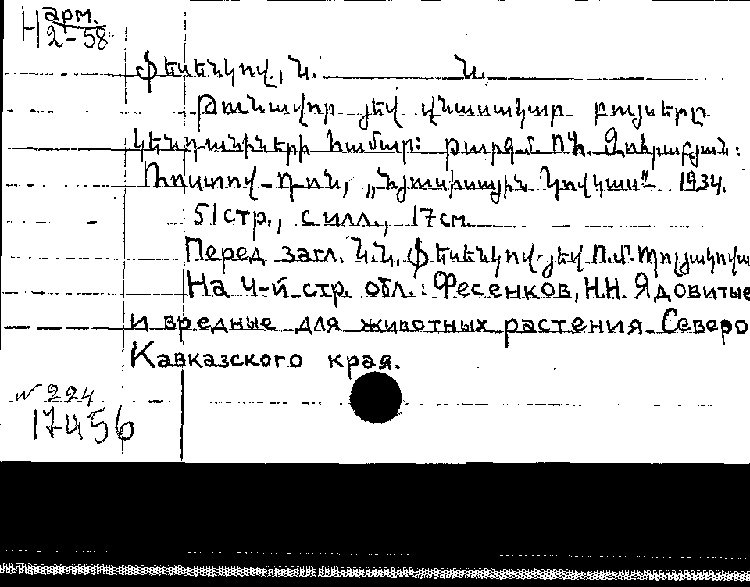 арм.
Н 2-58
Ֆեսենկով, Ն. Ն.
Թունավոր յեվ վնասակար բույսերը
կենդանիների համար: Թարգմ. Ռ. Զուրաբյան:
Ռոստով-Դոն, „Հյուսիսային Կովկաս" 1934.
51 стр., с илл., 17 см.
Перед загл. Ն.Ն. Ֆեսենկով յեվ Պ.Մ.
На 4-й стр. обл.: Фесенков, Н.Н. Ядовитые
и вредные для животных растения Северо
Кавказского края.
№ 224
17456